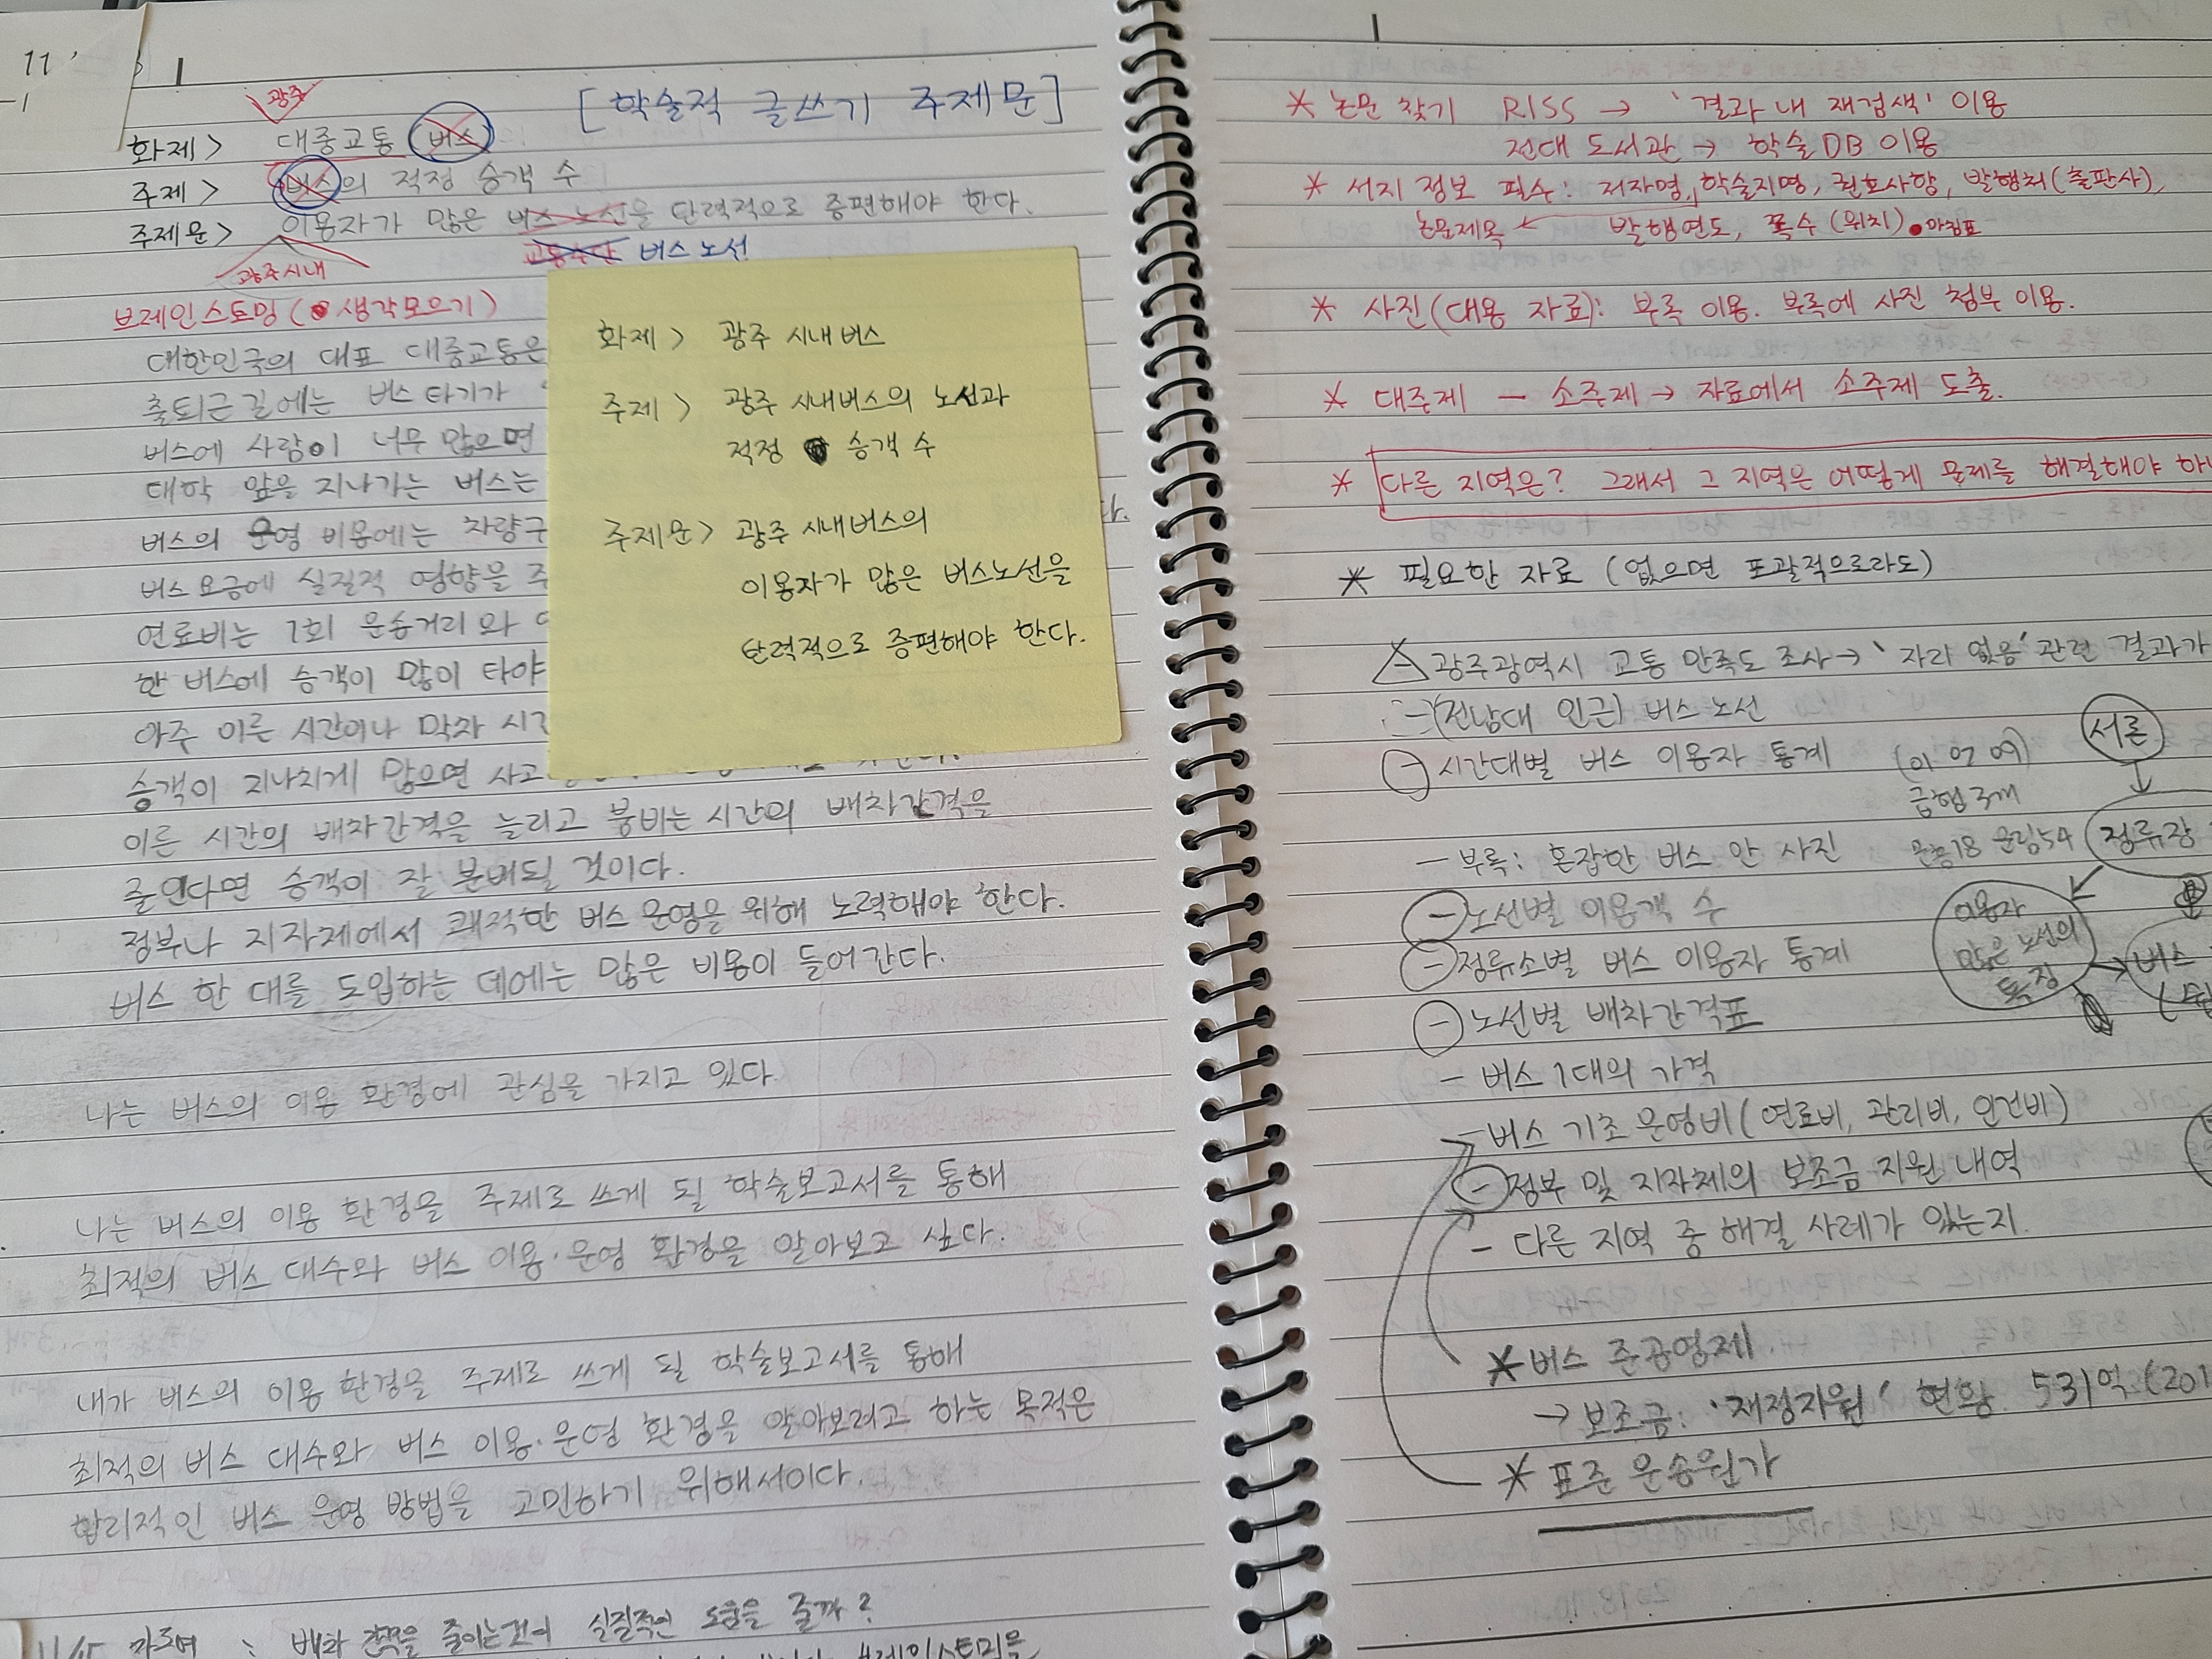 11
[학술적 글쓰기 주제문]
광주
화제 > 대중교통 (버스)
주제 > 버스의 적정 승객 수
주제문 > 이용자가 많은 버스 노선을 탄력적으로 증편해야 한다.
광주시내
교통수단 버스 노선
브레인스토밍 (생각모으기)
대한민국의 대표 대중교통은
출퇴근길에는 버스 타기가
버스에 사람이 너무 많으면
대학 앞을 지나가는 버스는
버스의 운영 비용에는 차량구
버스요금에 실질적 영향을 주
연료비는 1회 운송거리와
한 버스에 승객이 많이 타야
아주 이른 시간이나 막차 시간
승객이 지나치게 많으면 사고
이른 시간의 배차간격을 늘리고 붐비는 시간의 배차간격을
줄인다면 승객이 잘 분배될 것이다.
정부나 지자체에서 쾌적한 버스 운영을 위해 노력해야 한다.
버스 한 대를 도입하는 데에는 많은 비용이 들어간다.
나는 버스의 이용 환경에 관심을 가지고 있다.
나는 버스의 이용 환경을 주제로 쓰게 될 학술보고서를 통해
최적의 버스 대수와 버스 이용·운영 환경을 알아보고 싶다.
내가 버스의 이용 환경을 주제로 쓰게 될 학술보고서를 통해
최적의 버스 대수와 버스 이용·운영 환경을 알아보려고 하는 목적은
합리적인 버스 운영 방법을 고민하기 위해서이다.
11/15 : 배차 간격을 줄이는 것이 실질적인 도움을 줄까?
브레인스토밍을
화제 > 광주 시내버스
주제 > 광주 시내버스의 노선과
적정 승객 수
주제문 > 광주 시내버스의
이용자가 많은 버스노선을
탄력적으로 증편해야 한다.
* 논문 찾기 RISS → '결과 내 재검색' 이용
전대 도서관 → 학술DB 이용
* 서지 정보 필수: 저자명, 학술지명, 권호사항, 발행처(출판사),
논문제목 ← 발행연도, 쪽수 (위치) . 마침표
* 사진(대용 자료): 부록 이용. 부록에 사진 첨부 이용.
* 대주제 - 소주제 → 자료에서 소주제 도출.
* 다른 지역은? 그래서 그 지역은 어떻게 문제를 해결해야 하
* 필요한 자료 (없으면 포괄적으로라도)
- 광주광역시 교통 만족도 조사 → '자리 없음' 관련 결과가
- (전남대 인근) 버스 노선
- 시간대별 버스 이용자 통계
(01 02 09)
급행 3개
18 운림54
- 부록: 혼잡한 버스 안 사진
- 노선별 이용객 수
- 정류소별 버스 이용자 통계
- 노선별 배차간격표
- 버스 1대의 가격
- 버스 기초 운영비 (연료비, 관리비, 인건비)
- 정부 및 지자체의 보조금 지원 내역
- 다른 지역 중 해결 사례가 있는지.
서론
정류장
이용자
많은 노선의
특징
버스
* 버스 준공영제
→ 보조금: '재정지원' 현황 531억 (201
* 표준 운송원가